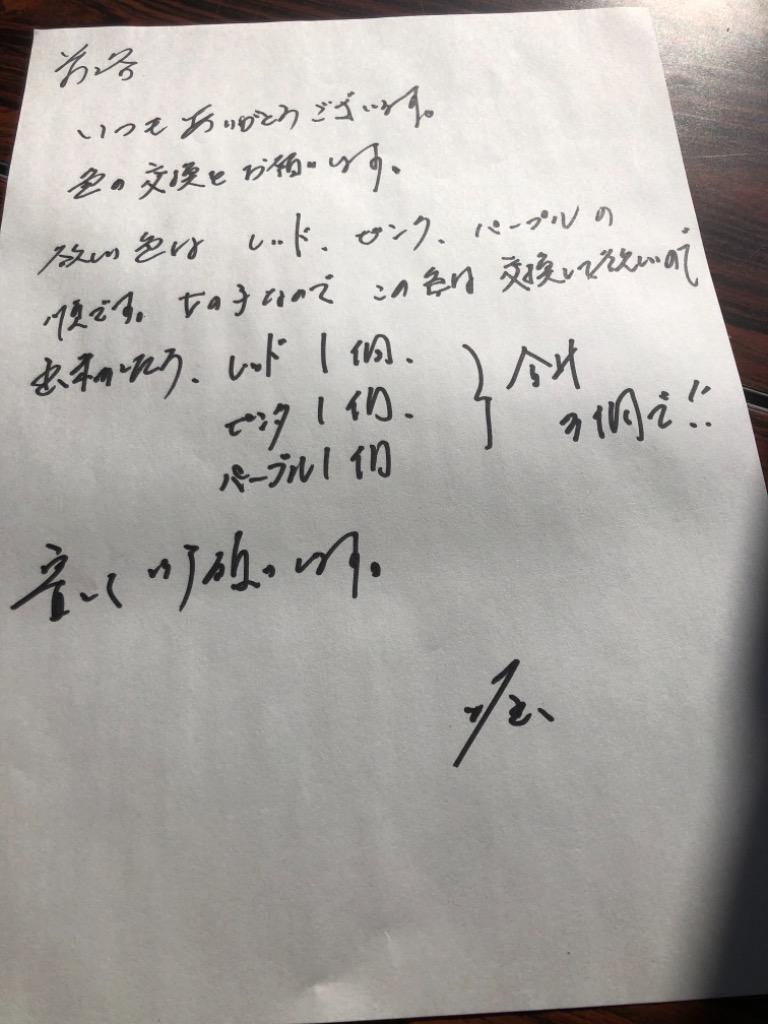 前略
いつもありがとうございます。
色の交換をお願いします。
欲しい色は レッド、ピンク、パープルの
順です。女の子なので この色は 交換して欲しいので
出来ましたら、レッド 1個、
ピンク 1個、
パープル 1個
合計
3個で!!
宜しくお願いします。